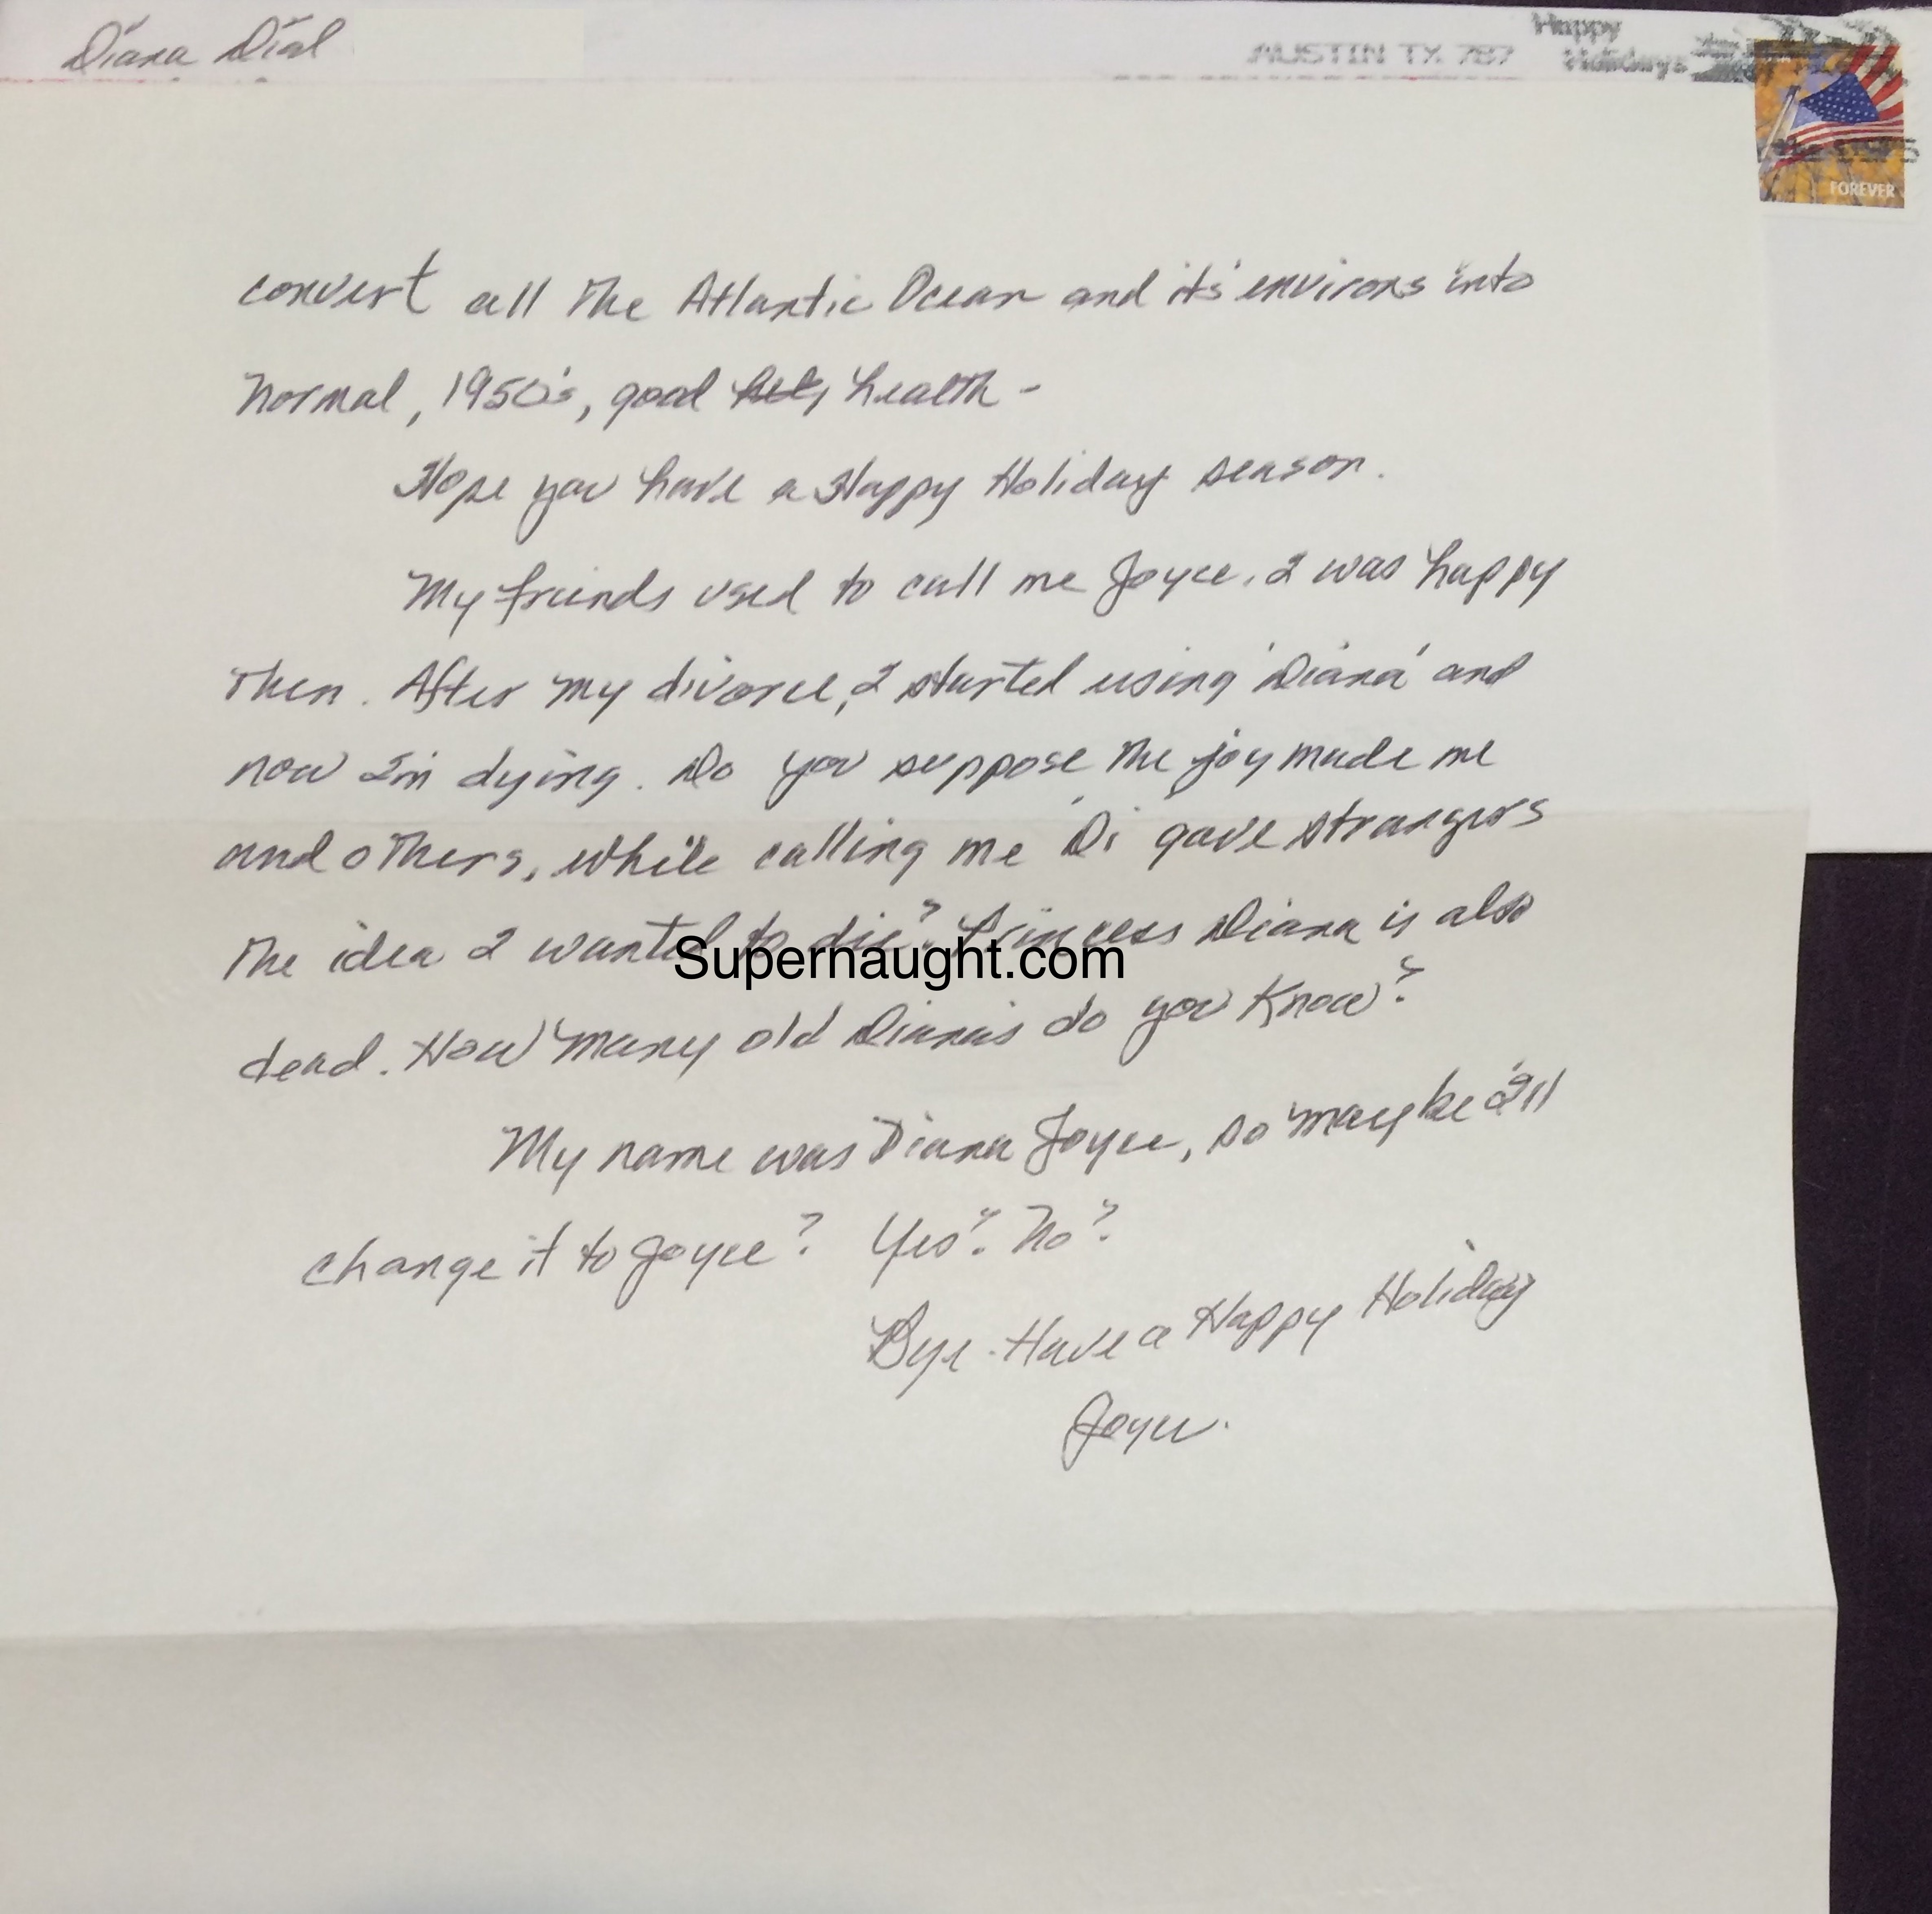 Diana Dial
AUSTIN TX 787
Happy
Holidays
FOREVER
convert all The Atlantic Ocean and its' environs into
Normal, 1950's, good health -
Hope you have a Happy Holiday season.
My friends used to call me Joyce. I was happy
Then. After my divorce, I started using 'Diana' and
now I'm dying. Do you suppose The joy made me
and others, while calling me 'Di' gave strangers
The idea I wanted to die? Princess Diana is also
Supernaught.com
dead. How many old Diana's do you know?
My name was Diana Joyce, so maybe I'll
change it to Joyce? Yes? No?
Bye. Have a Happy Holiday
Joyce.